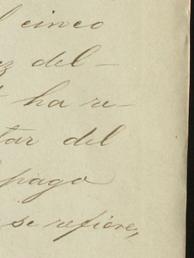 cinco
del-
ha re-
tar del
pago
se refiere,